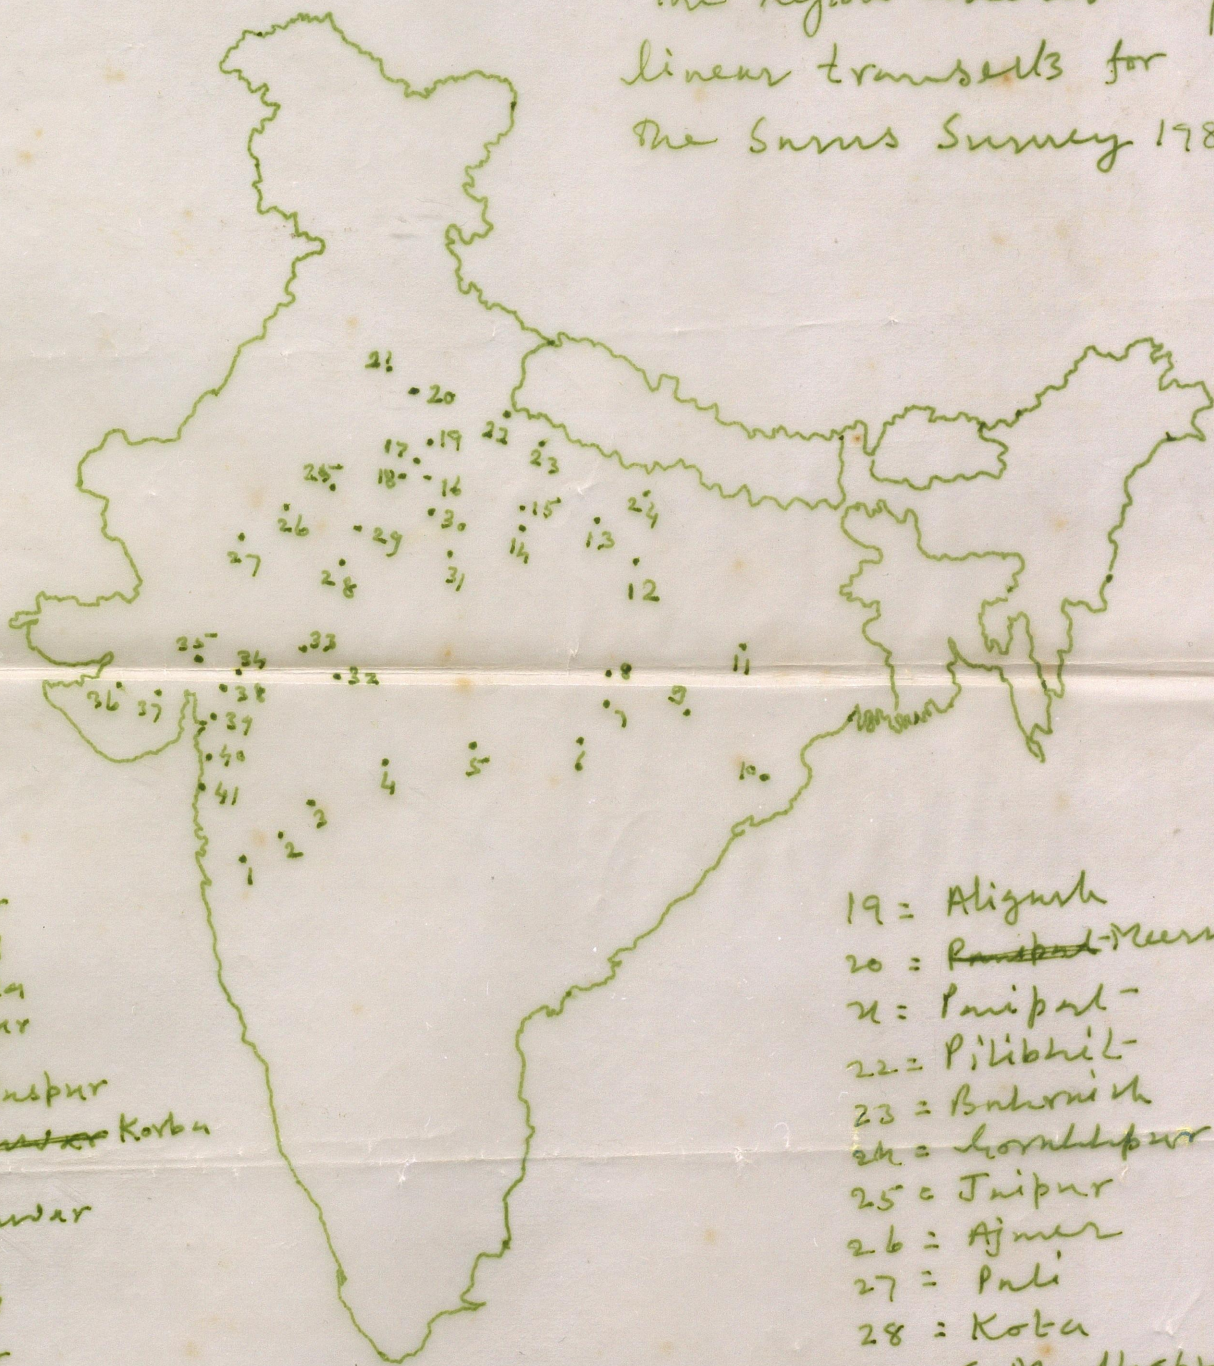 linear transects for
The Sarus Survey 198
21
20
19
22
17
23
25
18
16
24
15
26
30
13
29
14
27
28
31
12
35
33
34
8
11
32
38
36
37
9
7
39
40
6
5
10
4
41
3
2
1
19 = Aligarh
20 = Meeru
21 = Panipat
22 = Pilibhit
23 = Bahraich
24 = Gorakhpur
25 = Jaipur
26 = Ajmer
27 = Pali
28 = Kota
aspur
Korba